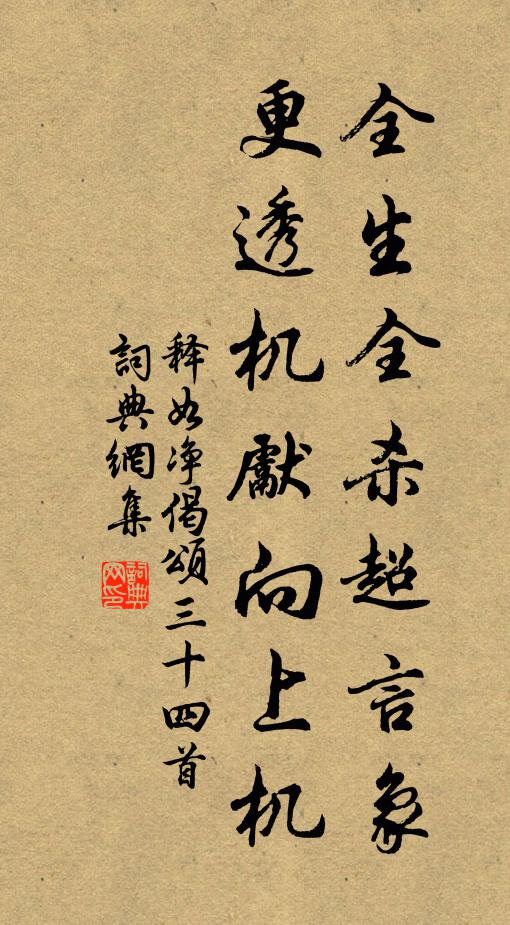 全生全杀超言象
更透机献向上机
释如净偈颂三十四首
詞典網集
詞典
网印